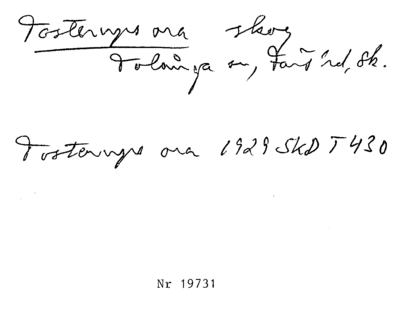 Tosterups ora skog
Tolånga sn, Färs hd, Sk.
Tosterups ora 1929 SkD T 430
Nr 19731